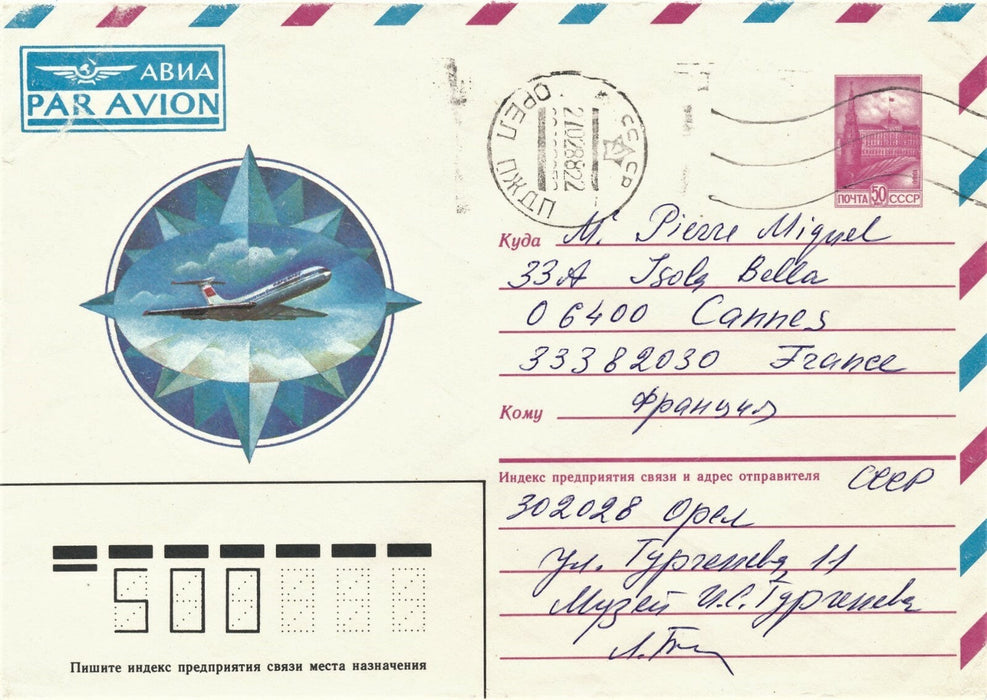 АВИА
PAR AVION
СССР
27028822
ОРЕЛ ПЖДП
ПОЧТА 50 СССР
Куда M. Pierre Miquel
33A Isola Bella
06400 Cannes
33382030 France
Кому Франция
Индекс предприятия связи и адрес отправителя
СССР
302028 Орел
ул. Тургенева 11
Музей И.С.Тургенева
500
Пишите индекс предприятия связи места назначения